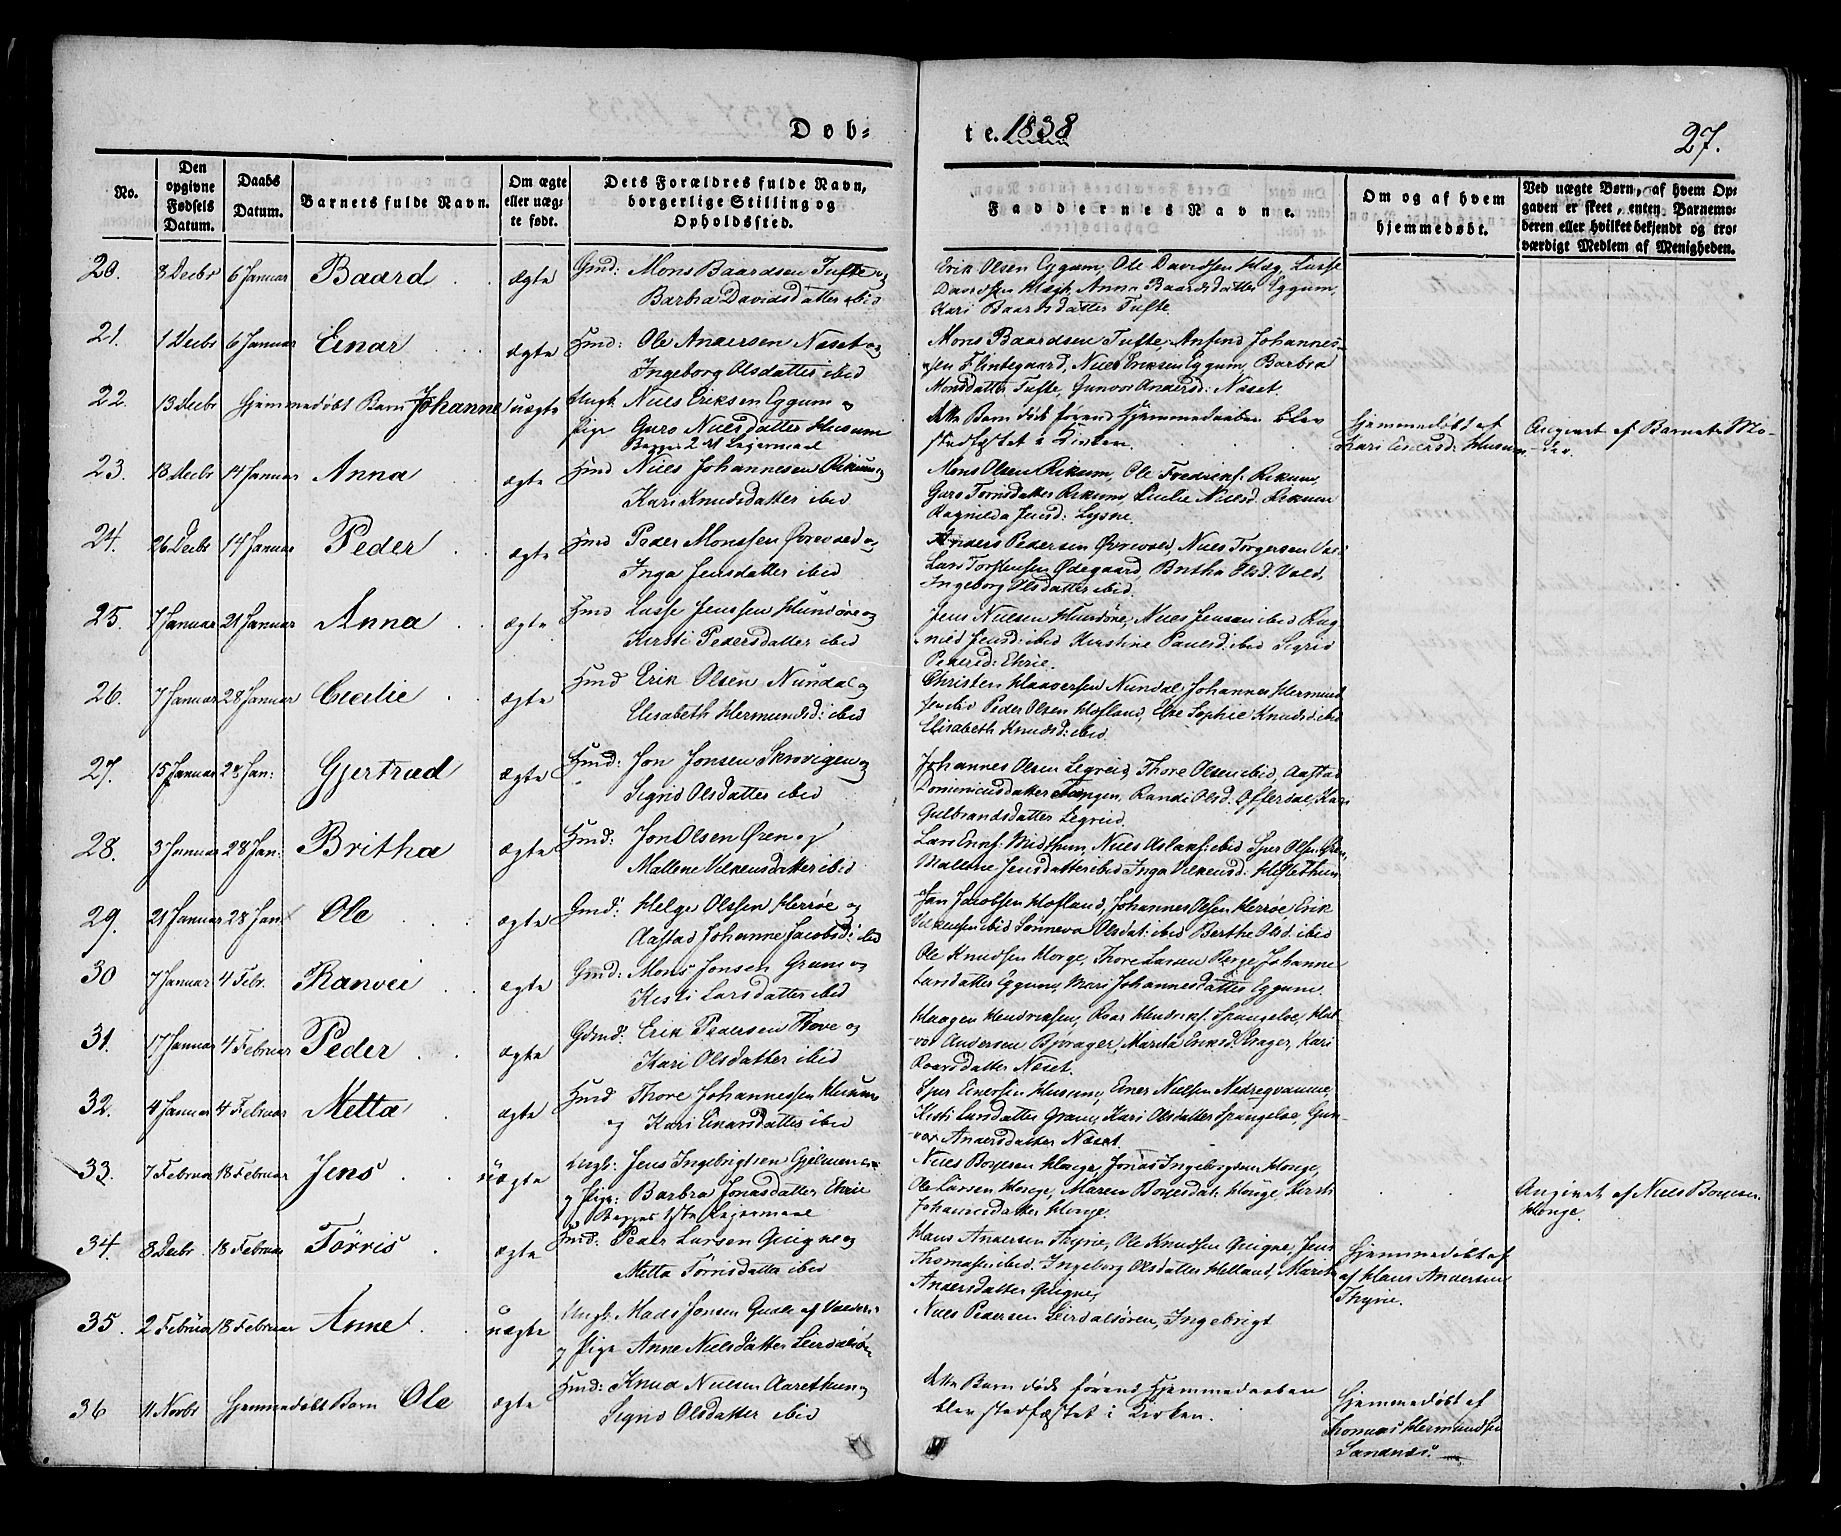 Døb-
te. 1838
27.
No.
Den opgivne Fødsels Datum.
Daabs Datum.
Barnets fulde Navn.
Om ægte eller uægte født.
Dets Forældres fulde Navn, borgerlige Stilling og Opholdssted.
Faddernes Navne.
Om og af hvem hjemmedøbt.
Ved uægte Børn, af hvem Opgaven er skeet, enten Barnemoderen eller hvilket bekjendt og troværdigt Medlem af Menigheden.
20. 8 Decbr 6 Januar Baard ægte Gmd: Mons Baardsen Tufte og
Barbra Davidsdatter ibid
Erik Olsen Eggum, Ole Davidsen Hæg, Lasse
Davidsen Hægh, Anna Baardsdatter Eggum,
Kari Baardsdatter Tufte
21. 1 Decbr 6 Januar Einar ægte Hmd: Ole Andersen Næset og
Ingeborg Olsdatter ibid
Mons Baardsen Tufte, Anfind Johannes-
sen Lindegaard, Niels Eriksen Eggum, Barbra
Monsdatter Tufte, Gunvor Andersd: Næset.
22. 13 Decbr Hjemmedøbt Barn Johanne uægte Ungk: Niels Eriksen Eggum og
Pige Guro Nielsdatter Husum
Begges 2det Leiermaal
dette Barn døde førend Hjemmedaaben blev
stadfæstet i Kirken.
Hjemmedøbt af
Kari Einersd: Husum
Angivet af Barnets Mo-
der.
23. 13 Decbr 14 Januar Anna ægte Hmd Niels Johannesen Rikum og
Kari Knudsdatter ibid
Mons Olsen Rikum, Ole Fredriks: Rikum,
Guro Torrisdatter Rikum, Cecilie Nielsd. Rikum
Ragnilda Jensd: Lysne.
24. 26 Decbr 14 Januar Peder ægte Hmd Peder Monssen Øvrevold og
Inga Jensdatter ibid
Anders Pedersen Øvrevold, Niels Torgersen
Lars Torstensen Ødegaard, Britha Olsd. Vold,
Ingeborg Olsdatter ibid.
25. 7 Januar 21 Januar Anna ægte Hmd Lasse Jenssen Hunsøre og
Kersti Pedersdatter ibid
Jens Nielsen Hundøre, Niels Jensen ibid Rag-
nild Jensd: ibid Kirstine Paulsd: ibid Sigrid
Pedersd: Ehrie.
26. 7 Januar 28 Januar Cecilie ægte Hmd Erik Olsen Nundal og
Elisabeth Hermundsd: ibid
Christen Haaversen Nundal, Johannes Hermund-
sen ibid Peder Olsen Hofland, Else Sophie Knudsd: ibid
Elisabeth Knudsd: ibid.
27. 15 Januar 28 Jan: Gjertrud ægte Hmd: Jon Jonsen Skrovigen og
Sigrid Olsdatter ibid
Johannes Olsen Legreid, Thore Olsen ibid, Aastad
Dominicusdatter Tangen, Randi Olsd. Offerdal, Kari
Gulbrandsdatter Legreid.
28. 3 Januar 28 Jan: Britha ægte Hmd: Jon Olsen Øren og
Mallene Vilkensdatter ibid
Lars Eriks: Midthun, Niels Aslaks: ibid Sjur Olsen Øren
Mallene Jensdatter ibid Inga Vilkensd: Hestethun
29. 21 Januar 28 Jan Ole ægte Gmd: Helge Olssen Herrøe og
Aastad Johanne Jacobsd: ibid
Jan Jacobsen Hofland, Johannes Olsen Herrøe, Erik
Vilkensen ibid Sønneva Olsdat: ibid Berthe Olsd: ibid
30 7 Januar 4 Febr. Ranvei ægte Gmd: Mons Jonsen Gram og
Kisti Larsdatter ibid
Ole Knudsen Horge, Thore Larsen Horge Johanne
Larsdatter Eggum, Mari Johannesdatter Eggum.
31. 17 Januar 4 Februar Peder ægte Gdmd: Erik Pedersen Hove og
Kari Olsdatter ibid
Haagen Hendriksen, Roar Hendriks: Spangelo, Hal-
vor Andersen Bjørager, Marita Eriksd: Prager, Kari
Roarsdatter Næset.
32. 11 Januar 4 Februar Metta ægte Hmd Thore Johannessen Husum
og Kari Einarsdatter ibid
Sjur Einersen Husum, Einer Nielsen Nedreqvamme,
Kisti Larsdatter Gram, Kari Olsdatter Spangelo, Gun-
vor Andersdatter Næset.
33. 7 Februar 18 Februar Jens uægte Ungk: Jens Ingebrigtsen Gjelmen
og Pige: Barbra Jonasdatter Ehrie
Begges 1ste Leiermaal
Niels Boyesen Houge, Jonas Ingebrigtsen Houge,
Ole Larsen Houge, Maren Boyesdat: Houge, Kersti
Johannesdatter Houge.
Angivet af Niels Boyesen
Houge.
34. 8 Decbr. 18 Februar Torris ægte Hmd. Peder Larsen Qvigne og
Metta Torrisdatter ibid
Hans Andersen Thyrie, Ole Knudsen Qvigne, Jens
Thomassen ibid, Ingeborg Olsdatter Helland, Marita
Andersdatter Qvigne,
Hjemmedøbt af
af Hans Andersen
Thyrie.
35. 2 Februar 18 Februar Anne uægte Ungk: Mads Jonsen Qvale af Valders
og Pige Anne Nielsdatter Leirdalsøren
Niels Pedersen Leirdalsøren, Ingebrigt
36 11 Novbr Hjemmedøbt Barn Ole ægte Hmd: Knud Nielsen Aarethun og
Sigrid Olsdatter ibid
dette Barn døde førend Hjemmedaaben
blev stadfæstet i Kirken.
Hjemmedøbt af
Thomas Hermundsen
Sandnæs.